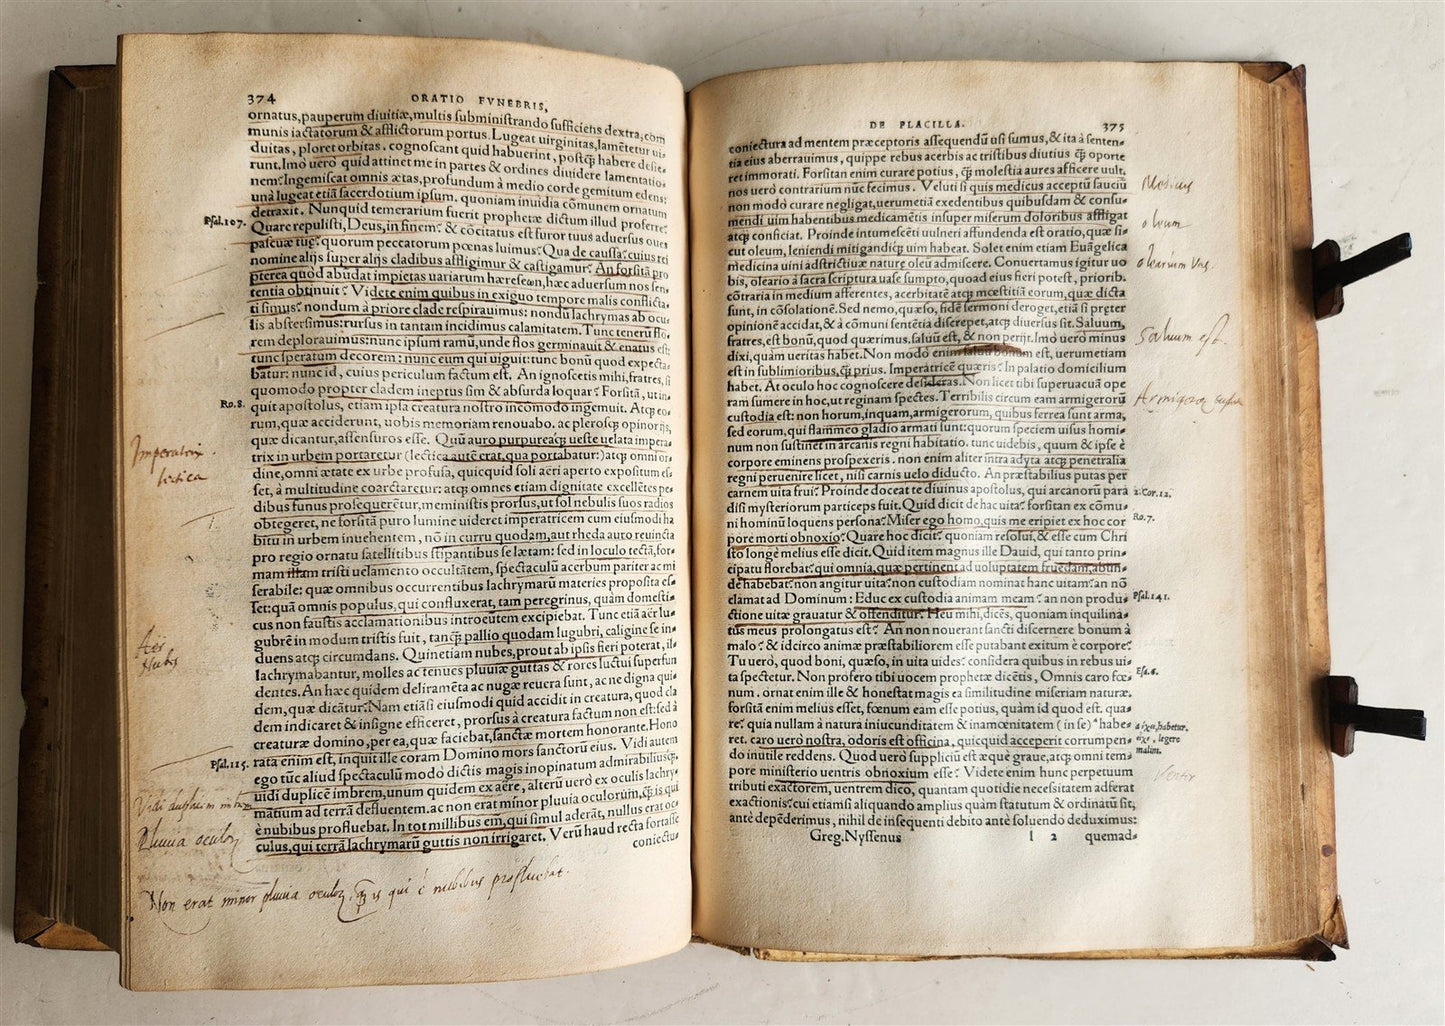 374 ORATIO FVNEBRIS,
ornatus,pauperum diuitiæ,multis subministrando sufficiens dextra,com
munis iactatorum & afflictorum portus. Lugeat uirginitas,lamētetur ui-
duitas, ploret orbitas. cognoscant quid habuerint, postq̃ habere desie-
runt.Imò uerò quid attinet me in partes & ordines diuidere lamentatio-
nem? Ingemiscat omnis ætas,profundum à medio corde gemitum edens:
unà lugeat etiā sacerdotium ipsum. quoniam inuidia cōmunem ornatum
detraxit. Nunquid temerarium fuerit prophetæ dictum illud proferre:
Psal.107.
Quare repulisti,Deus,in finem? & cōcitatus est furor tuus aduersus oues
pascuæ tuę? quorum peccatorum pœnas luimus? Qua de caussa? cuius rei
nomine alijs super alijs cladibus affligimur & castigamur? An forsitā pro
pterea quòd abūdat impietas uariarum hæreseωn, hæc aduersum nos sen-
tentia obtinuit? Videte enim quibus in exiguo tempore malis conflicta-
ti simus? nondum à priore clade respirauimus: nondū lachrymas ab ocu-
lis abstersimus: rursus in tantam incidimus calamitatem. Tunc tenerū flo-
rem deplorauimus: nunc ipsum ramū,unde flos germinauit & enatus est:
tunc speratum decorem: nunc eum qui uiguit: tunc bonū quod expecta-
batur: nunc id, cuius periculum factum est. An ignoscetis mihi,fratres, si
quomodo propter cladem ineptus sim & absurda loquar? Forsitā, ut in-
Ro.8.
quit apostolus, etiam ipsa creatura nostro incōmodo ingemuit. Atq; eo-
rum,quæ acciderunt, uobis memoriam renouabo. ac plerosq; opinor ijs,
quæ dicantur,assensuros esse. Quū auro purpureaq; ueste uelata impera-
Imperatrix
trix in urbem portaretur (lectica autē erat,qua portabatur:)atq; omni or-
lectica
dine,omni ætate ex urbe profusa, quicquid soli aëri aperto expositum es-
set, à multitudine coarctaretur: atq; omnes etiam dignitate excellētes pe-
dibus funus prosequerētur,meministis prorsus,ut sol nebulis suos radios
obtegeret, ne forsitā puro lumine uideret imperatricem cum eiusmodi ha
bitu in urbem inuehentem, nō in curru quodam,aut rheda auro reuincta
pro regio ornatu satellitibus stipantibus se lætam: sed in loculo tectā,for-
mam illam tristi uelamento occultātem, spectaculū acerbum pariter ac mi
serabile: quæ omnibus occurrentibus lachrymarū materies proposita es-
set: quā omnis populus, qui confluxerat, tam peregrinus, quàm domesti-
cus non faustis acclamationibus introeūtem excipiebat. Tunc etiā aër lu-
Aër
gubrē in modum tristis fuit, tanq̃ pallio quodam lugubri, caligine se in-
Nubes
duens atq; circumdans. Quinetiam nubes,prout ab ipsis fieri poterat, il-
lachrymabantur, molles ac tenues pluuiæ guttas & rores luctui superfun
dentes. An hæc quidem deliramēta ac nugæ reuera sunt, ac ne digna qui-
dem,quæ dicātur? Nam etiāsi eiusmodi quid accidit in creatura, quod cla
dem indicaret & insigne efficeret, prorsus à creatura factum non est:sed à
creaturæ domino,per ea, quæ faciebat,sanctæ mortem honorante.Hono
Psal.115.
rata enim est, inquit ille coram Domino mors sanctorū eius. Vidi autem
ego tūc aliud spectaculū modò dictis magis inopinatum admirabiliusq;.
uidi duplicē imbrem,unum quidem ex aëre, alterū uerò ex oculis lachry-
matium ad terrā defluentem.ac non erat minor pluuia oculorum,q̃ is qui
Pluuia oculoꝝ
è nubibus profluebat. In tot millibus em̄,qui simul aderāt, nullus erat oc-
culus,qui terrā lachrymarū guttis non irrigaret. Verū haud recta fortasse
coniectu-
Non erat minor pluuia oculoꝝ, q̃ is qui è nubibus profluebat.
DE PLACILLA. 375
coniectura ad mentem præceptoris assequendū usi sumus,& ita à senten-
tia eius aberrauimus, quippe rebus acerbis ac tristibus diutius q̃ oporte
ret immorati. Forsitan enim curare potius, q̃ molestia aures afficere uult.
nos uerò contrarium nūc fecimus. Veluti si quis medicus acceptū sauciū
Medicus
non modò curare negligat,uerumetiā exedentibus quibusdam & consu-
mendi uim habentibus medicamētis insuper miserum doloribus affligat
atq; conficiat. Proinde intumescēti uulneri affundenda est oratio,quæ si-
oleum
cut oleum, leniendi mitigandiq; uim habeat. Solet enim etiam Euāgelica
medicina uini adstrictiuæ naturæ oleū admiscere. Conuertamus igitur uo
olearium Vas.
bis, oleario à sacra scriptura uase sumpto,quoad eius fieri potest, priorib.
cōtraria in medium afferentes, acerbitatē atq; mœstitiā eorum,quæ dicta
sunt, in cōsolationē.Sed nemo,quæso, fidē sermoni deroget,etiā si præter
opinionē accidat,& à cōmuni sentētia discrepet,atq; diuersus sit. Saluum,
Saluum est.
fratres,est bonū,quod quærimus.saluū est, & non perijt.Imò uerò minus
dixi,quàm ueritas habet.Non modò enim saluū bonum est, uerumetiam
est in sublimioribus,q̃ prius. Imperatricē quæris? In palatio domicilium
habet. At oculo hoc cognoscere desideras.Non licet tibi superuacua ope
ram sumere in hoc,ut reginam spectes.Terribilis circum eam armigerorū
custodia est: non horum,inquam,armigerorum, quibus ferrea sunt arma,
sed eorum,qui flammeo gladio armati sunt: quorum speciem uisus homi-
num non sustinet in arcanis regni habitatio. tunc uidebis, quum & ipse è
corpore eminens prospexeris. non enim aliter intra adyta atq; penetralia
regni peruenire licet, nisi carnis uelo diducto. An præstabilius putas per
2.Cor.12.
carnem uita frui? Proinde doceat te diuinus apostolus, qui arcanorū para
disi mysteriorum particeps fuit. Quid dicit de hac uita? forsitan ex cōmu-
Ro.7.
ni hominū loquens persona? Miser ego homo,quis me eripiet ex hoc cor
pore morti obnoxio? Quare hoc dicit? quoniam resolui, & esse cum Chri
sto longè melius esse dicit. Quid item magnus ille Dauid, qui tanto prin-
cipatu florebat? qui omnia,quæ pertinent ad uoluptatem fruēdam,abun-
dè habebat? non angitur uita? non custodiam nominat hanc uitam? an nō
Psal.141.
clamat ad Dominum: Educ ex custodia animam meam? an non produ-
ctione uitæ grauatur & offenditur? Heu mihi,dicēs, quoniam inquilina-
tus meus prolongatus est? An non nouerant sancti discernere bonum à
malo? & idcirco animæ præstabiliorem esse putabant exitum è corpore?
Tu uerò, quod boni, quæso, in uita uides? considera quibus in rebus ui-
Esa.6.
ta spectetur. Non profero tibi uocem prophetæ dicētis, Omnis caro fœ-
num. ornat enim ille & honestat magis ea similitudine miseriam naturæ.
forsitā enim melius esset, fœnum eam esse potius, quàm id quod est. qua-
re? quia nullam à natura iniucunditatem & inamœnitatem (in se) *habe-
ret. caro uerò nostra, odoris est officina, quicquid acceperit corrumpen-
legere
malim.
do inutile reddens. Quod uerò suppliciū est æquè graue,atq; omni tem-
pore ministerio uentris obnoxium esse? Videte enim hunc perpetuum
Venter
tributi exactorem, uentrem dico, quantam quotidie necessitatem adferat
exactionis? cui etiamsi aliquando amplius quàm statutum & ordinatū sit,
antè depēderimus, nihil de insequenti debito antè soluendo deduximus:
Greg.Nyssenus l 2 quemad-